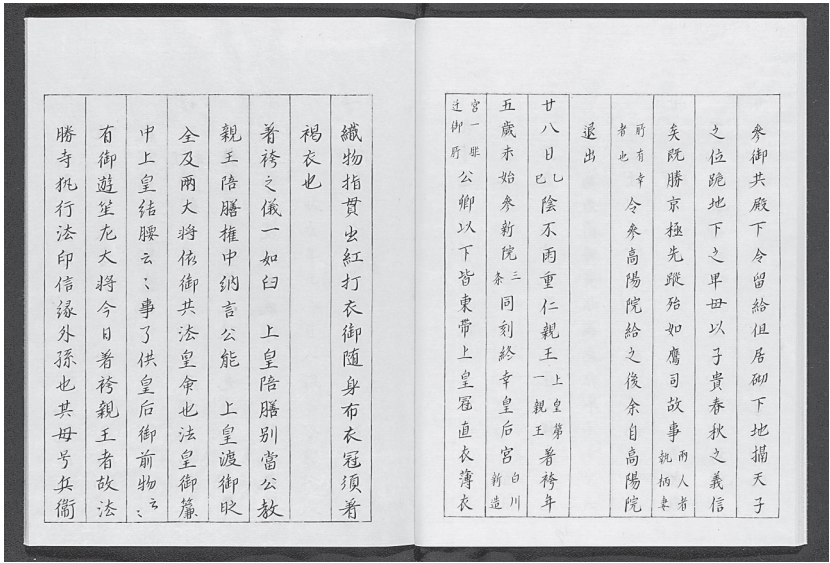 參御共殿下令留給但居砌下地揖天子
之位跪地下之卑母以子貴春秋之義信
矣既勝京極先蹤殆如鷹司故事兩人者執柄妻
所有幸者也令參高陽院給之後余自高陽院
退出
廿八日乙巳陰不雨重仁親王上皇第一親王著袴年
五歲未始參新院三条同刻終幸皇后宮白川新造
宮一昨迁御所公卿以下皆束帶上皇冠直衣薄衣
織物指貫出紅打衣御随身布衣冠須著
褐衣也
著袴之儀一如旧上皇陪膳別當公教
親王陪膳權中納言公能上皇渡御
全及兩大將依御共法皇命也法皇御簾
中上皇結腰云〻事了供皇后御前物云〻
有御遊笙左大將今日著袴親王者故法
勝寺執行法印信縁外孫也其母号兵衞